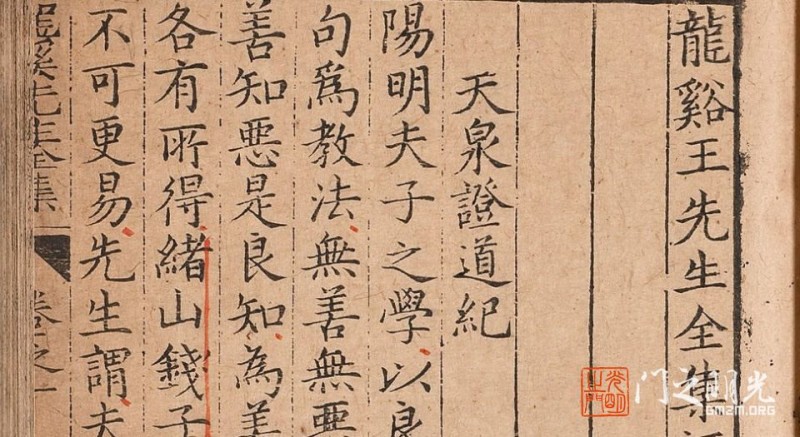 龍谿王先生全集
天泉證道紀
陽明夫子之學以良
句爲教法無善無悪
善知悪是良知為善
各有所得緒山錢子
不可更易先生謂夫
先生全集 卷之一
光明之門
门之明光
GMZM.ORG